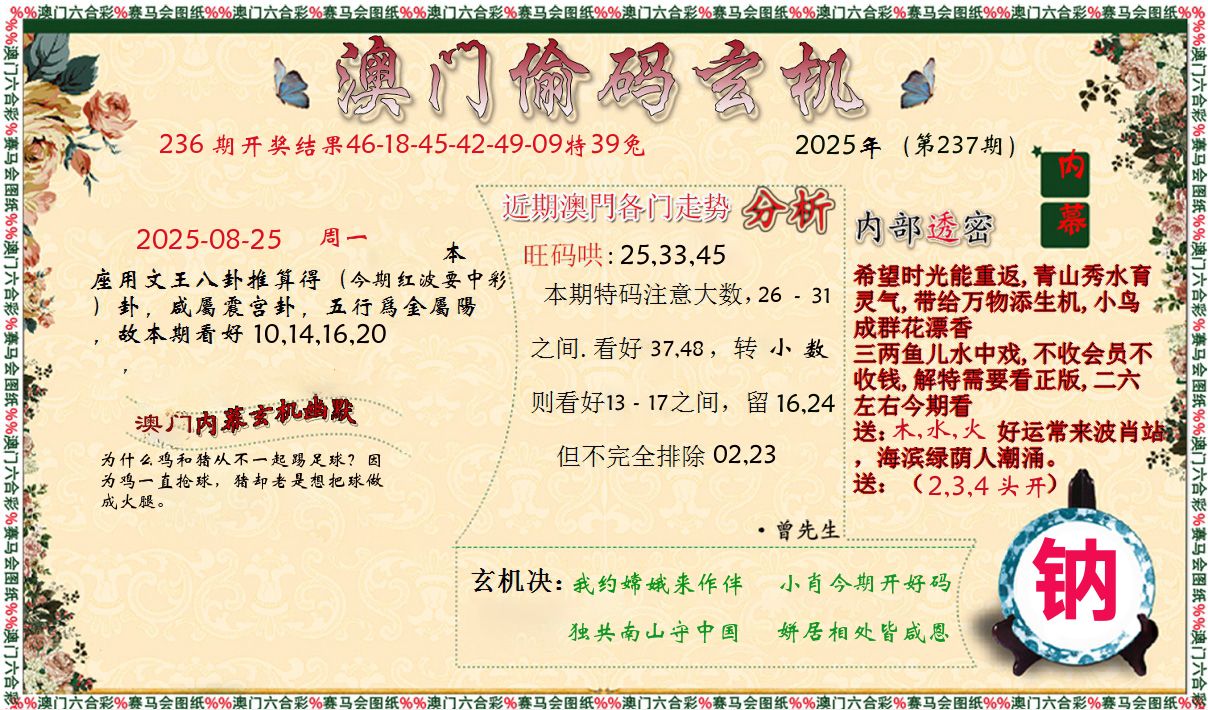 %%澳门六合彩%赛马会图纸%%澳门六合彩%赛马会图纸%%澳门六合彩%赛马会图纸%%澳门六合彩%赛马会图纸%%澳门六合彩%赛马会图纸%%澳门六合彩%赛马会图纸%%
澳门偷码玄机
236 期开奖结果46-18-45-42-49-09特39兔
2025年（第237期）
2025-08-25 周一
本
座用文王八卦推算得（今期红波要中彩
）卦，咸屬震宫卦，五行爲金屬陽
，故本期看好 10,14,16,20
，
澳门内幕玄机幽默
为什么鸡和猪从不一起踢足球？因
为鸡一直抢球，猪却老是想把球做
成火腿。
近期澳門各门走势 分析
旺码哄: 25,33,45
本期特码注意大数, 26 - 31
之间. 看好 37,48，转 小 数
则看好13 - 17之间，留 16,24
但不完全排除 02,23
·曾先生
内部透密
内幕
希望时光能重返, 青山秀水育
灵气, 带给万物添生机, 小鸟
成群花漂香
三两鱼儿水中戏, 不收会员不
收钱, 解特需要看正版, 二六
左右今期看
送: 木,水,火 好运常来波肖站
，海滨绿荫人潮涌。
送: （2,3,4 头开）
玄机决: 我约嫦娥来作伴 小肖今期开好码
独共南山守中国 姘居相处皆感恩
钠
%%澳门六合彩%赛马会图纸%%澳门六合彩%赛马会图纸%%澳门六合彩%赛马会图纸%%澳门六合彩%赛马会图纸%%澳门六合彩%赛马会图纸%%澳门六合彩%赛马会图纸%%